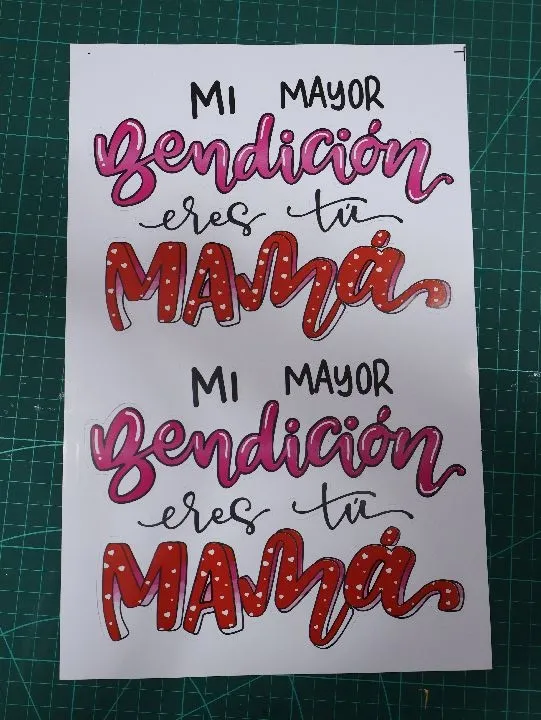 MI MAYOR
Bendición
eres tú
MAMá
MI MAYOR
Bendición
eres tú
MAMá